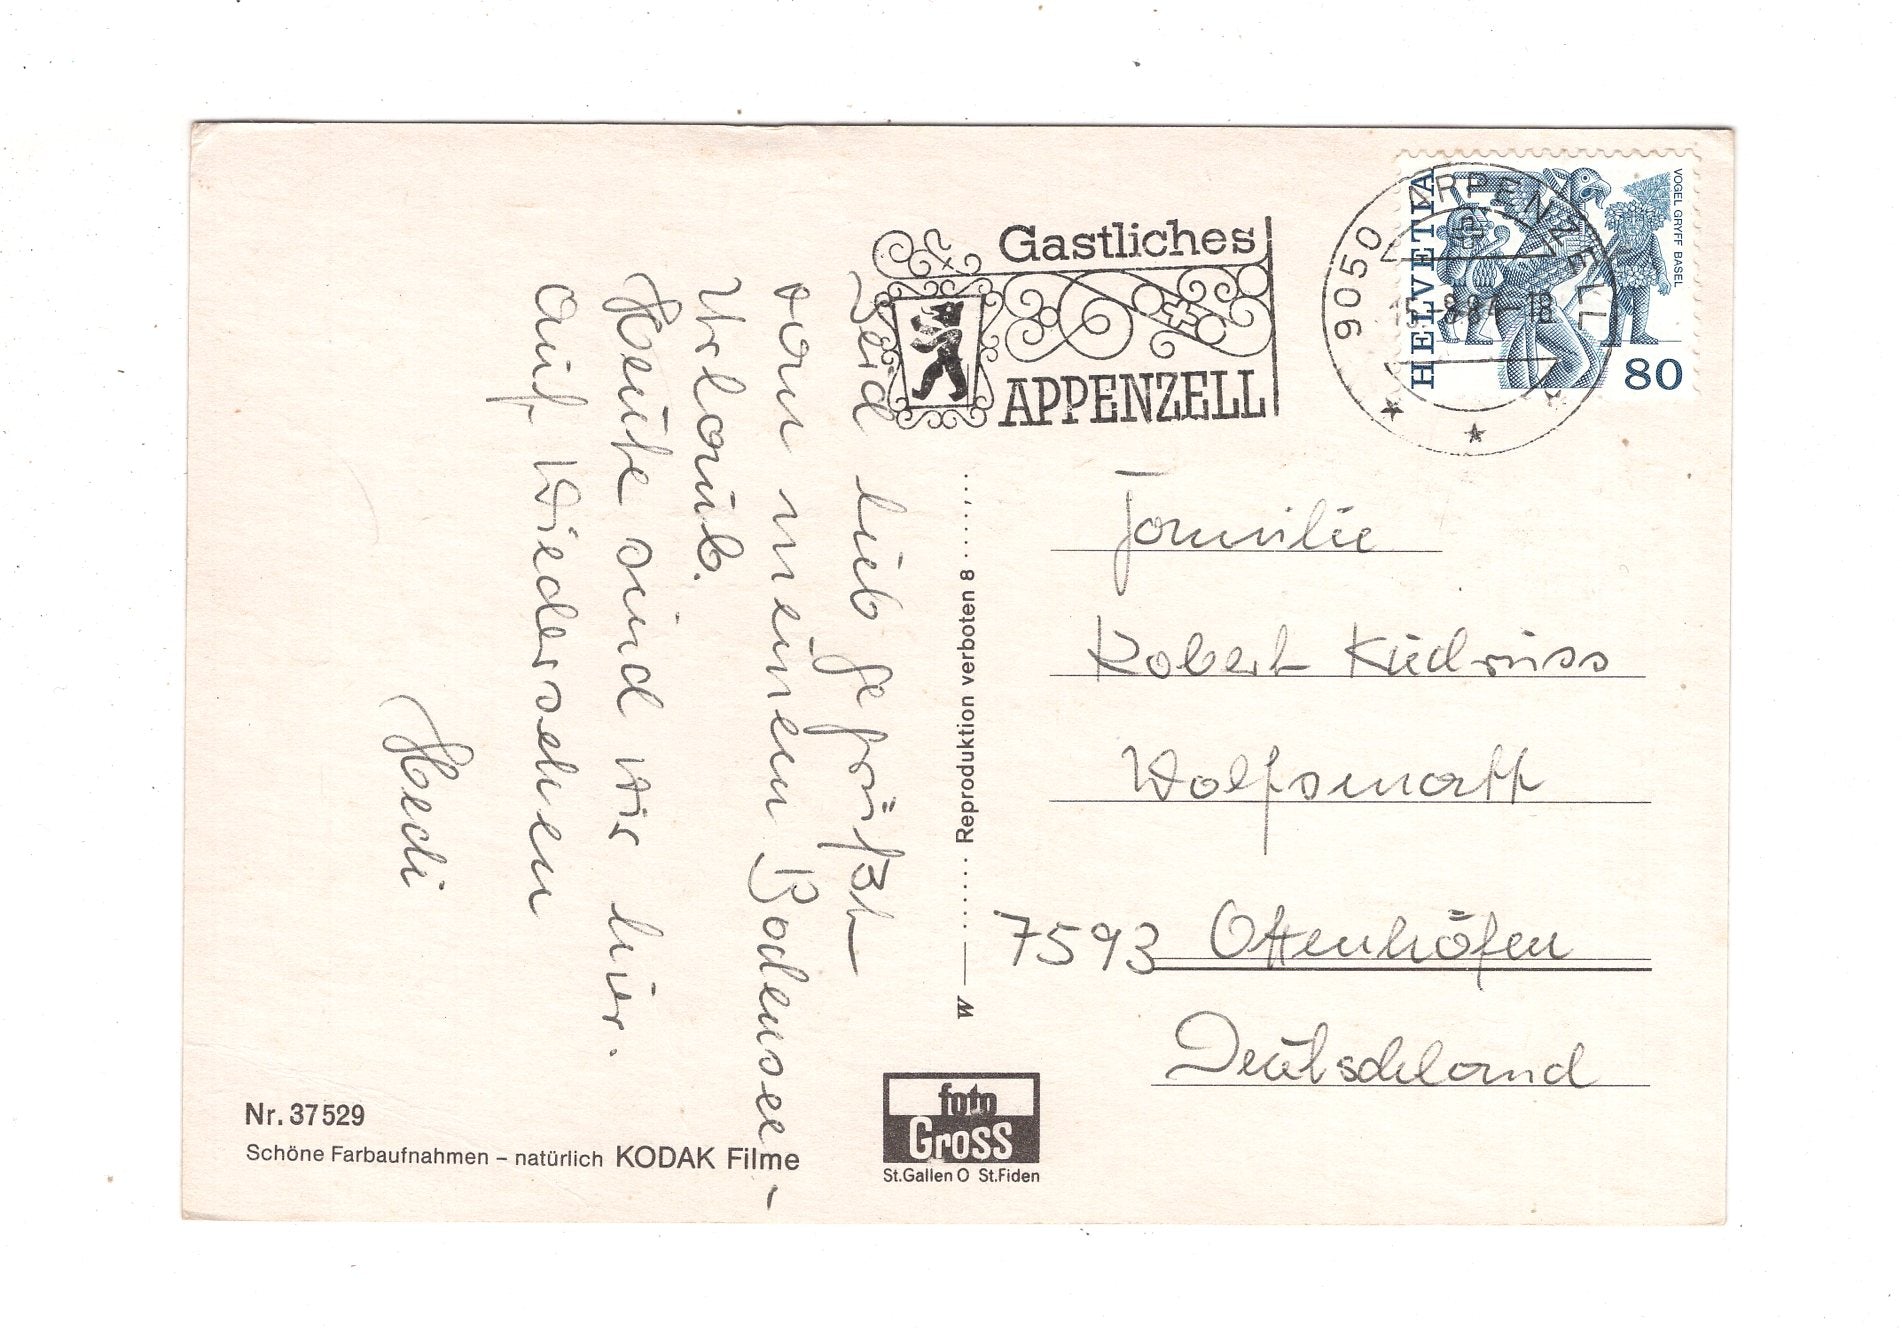 Seid lieb gegrüßt
von meinem Bodensee-
Urlaub.
Heute sind wir hier.
Auf Wiedersehen
Hedi
Nr. 37529
Schöne Farbaufnahmen – natürlich KODAK Filme
Reproduktion verboten 8
foto
Gross
St.Gallen O St.Fiden
Gastliches
APPENZELL
9050 APPENZELL
HELVETIA
VOGEL GRYFF BASEL
80
Familie
Robert
Wolfsmatt
7593 Ottenhöfen
Deutschland